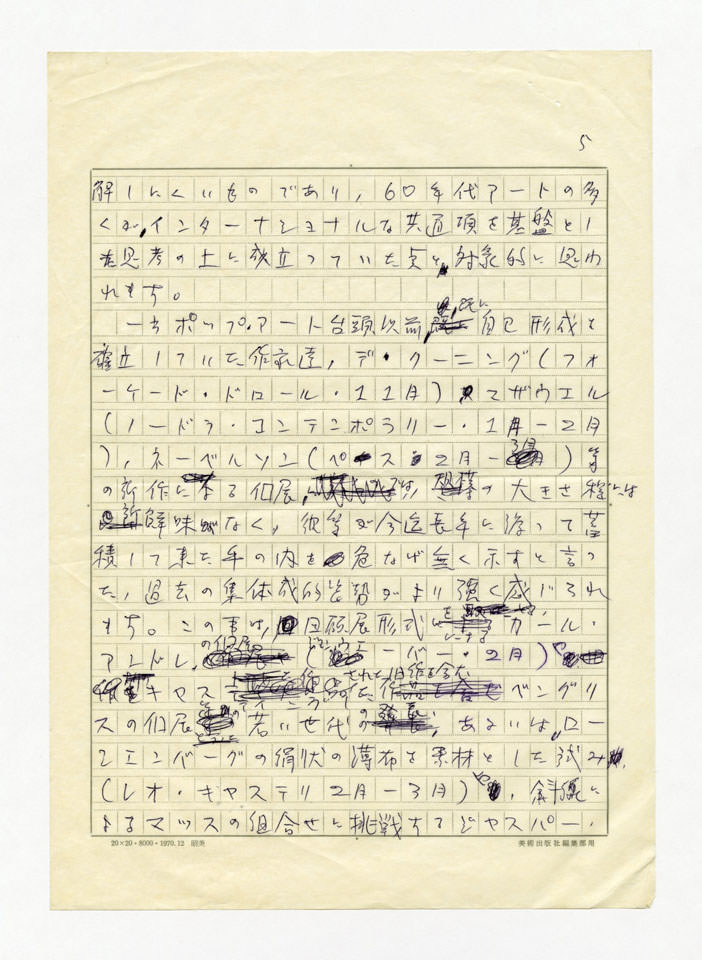 5
解しにくいものであり, 60年代アートの多
くが,インターナショナルな共通項を基盤とし
た思考の上に成立っていた点と,対象的に思わ
れます。
一方ポップ・アート台頭以前, 既に自己形成を
確立していた作家達, デ・クーニング(フォ
ーケード・ドロール・11月)
(ノードラ・コンテンポラリー・1月-2月
), ネーベルソン(ペース・2月-3月)等
の新作による個展, の大きさ程には
新鮮味がなく, 彼等が今迄長年に渉って蓄
積して来た手の内を危なげ無く示すと言っ
た, 過去の集体成的姿勢がより強く感じられ
ます。この事は, 回顧展形式をとったカール・
アンドレの個展(ドゥワン・2月)
キャス 旧作を含むベングリ
スの個展 若い世代の あるいは,ロー
シェンバーグの絹状の薄布を素材とした試み
(レオ・キャステリ2月-3月), 斜線に
よるマッスの組合せに挑戦するジャスパー・
20×20・8000・1970.12 昭美
美術出版社編集部用